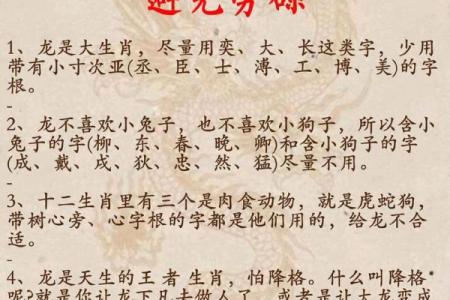 避免劳碌
1、龙是大生肖，尽量用奕、大、长这类字，少用
带有小寸次亚(丞、臣、士、溥、工、博、美)的字
根。
-
2、龙不喜欢小兔子，也不喜欢小狗子，所以含小
兔子的字(柳、东、春、晚、卿)和含小狗子的字
(成、戴、戌、狄、忠、然、猛)尽量不用。
-
3、十二生肖里有三个是肉食动物，就是虎蛇狗，
带树心旁、心字根的字都是他们用的，给龙不合
适。
-
4、龙是天生的王 者 生肖，怕降格。什么叫降格*
呢?就是你让龙下凡去做人了，或者是让大龙变成